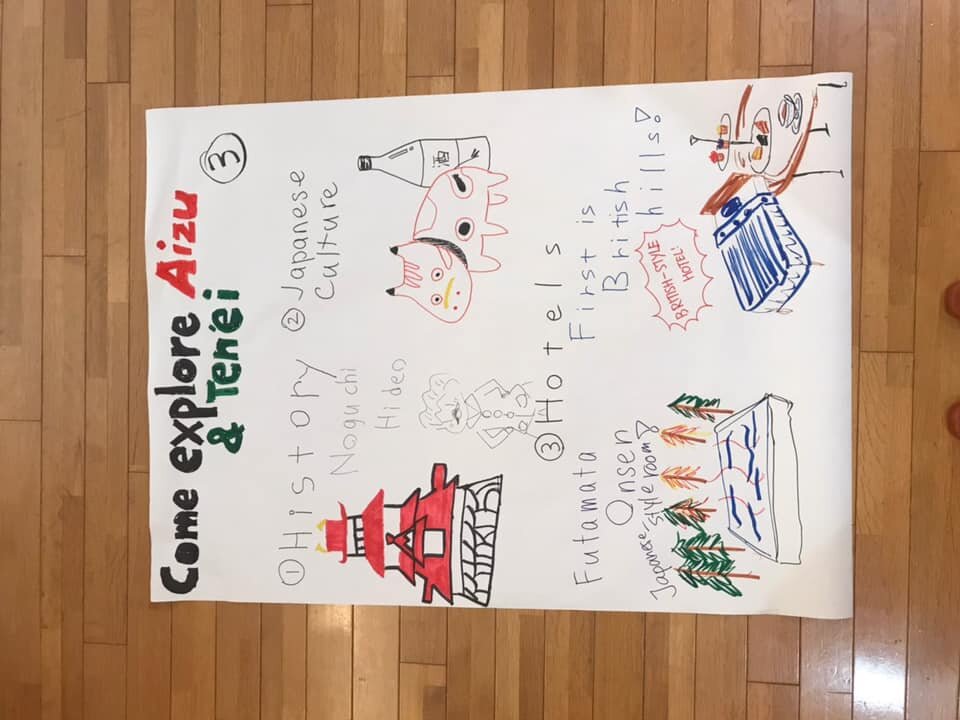 Come explore Aizu
& Ten'ei
3
① History
Noguchi
Hideo
② Japanese
Culture
酒
③ Hotels
Futamata
Onsen
Japanese style room!
First is
British
hills!
BRITISH-STYLE
HOTEL!